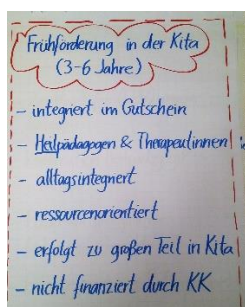 Frühförderung in der Kita
(3-6 Jahre)
- integriert im Gutschein
- Heilpädagogen & Therapeutinnen
- alltagsintegriert
- ressourcenorientiert
- erfolgt zu großen Teil in Kita
- nicht finanziert durch KK